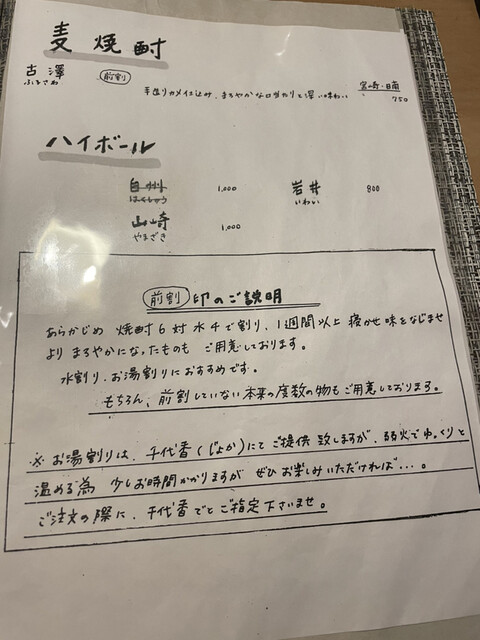 麦焼酎
古澤 前割 宮崎・日南
ふるさわ 手造りカメ仕込み、まろやかな口当たりと深い味わい 750
ハイボール
白州 1,000 岩井 800
はくしゅう いわい
山崎 1,000
やまざき
前割 印のご説明
あらかじめ 焼酎6対水4で割り、1週間以上 寝かせ味をなじませ
よりまろやかになったものも ご用意しております。
水割り、お湯割りにおすすめです。
もちろん、前割していない本来の度数の物もご用意しております。
※お湯割りは、千代香(じょか)にてご提供致しますが、弱火でゆっくりと
温める為 少しお時間かかりますが ぜひお楽しみいただければ...。
ご注文の際に、千代香でとご指定下さいませ。